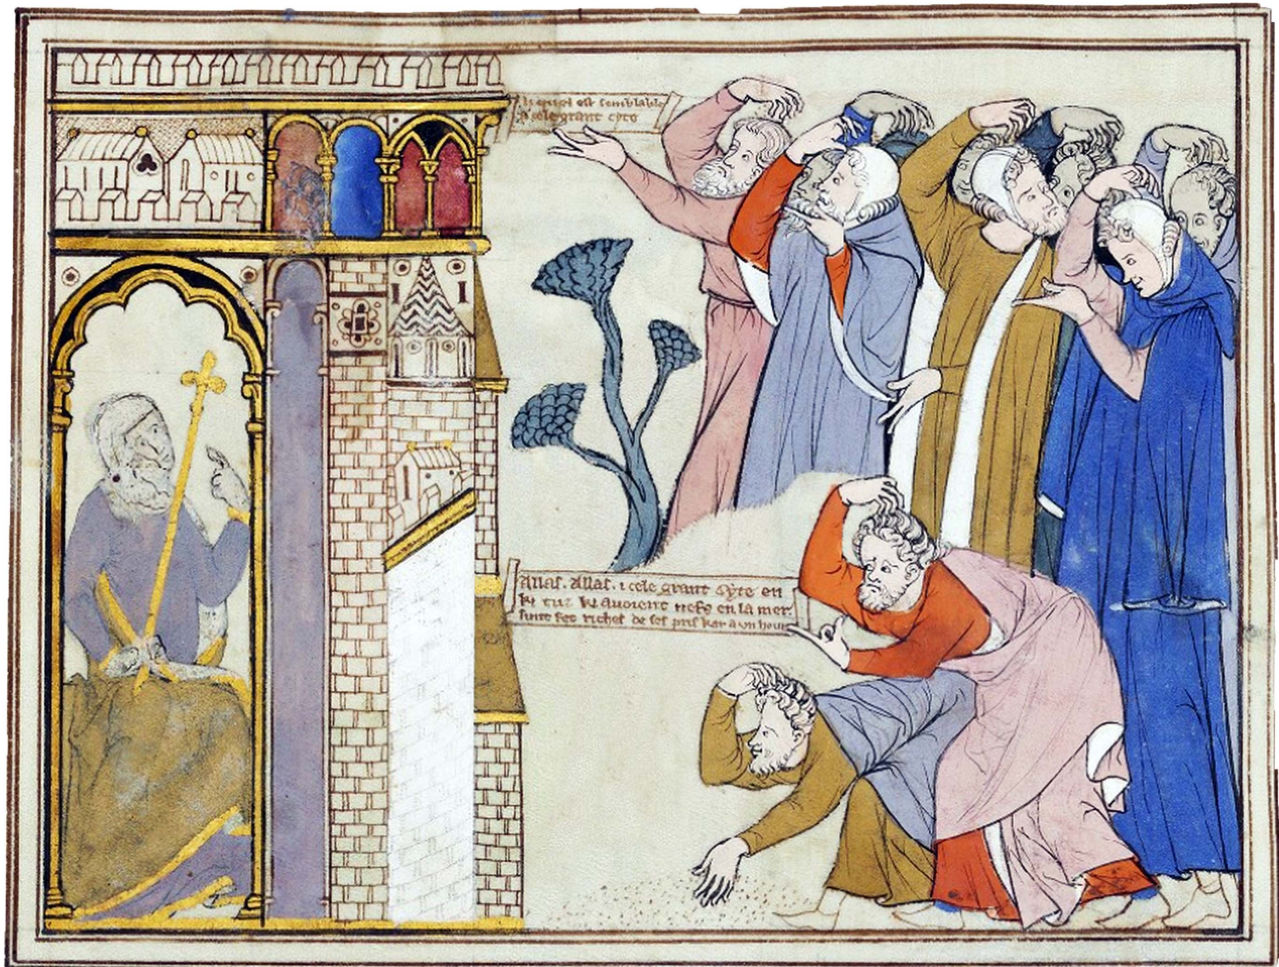 est semblable
cele grant cyte
Allas. Allas. i cele grant cyte en
ki tuz ki auoient nefs en la mer.
sunt fet riches de ses pris kar a vn houre